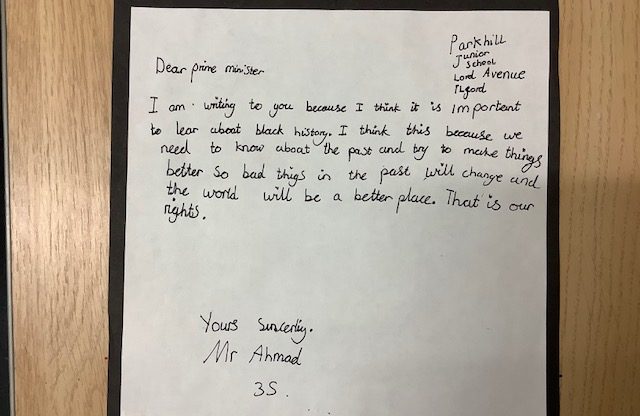 Parkhill
Junior
School
Lord Avenue
Ilford
Dear prime minister
I am writing to you because I think it is importent
to lear about black history. I think this because we
need to know about the past and try to make things
better so bad thigs in the past will change and
the world will be a better place. That is our
rights.
Yours sincerliy.
Mr Ahmad
3S.